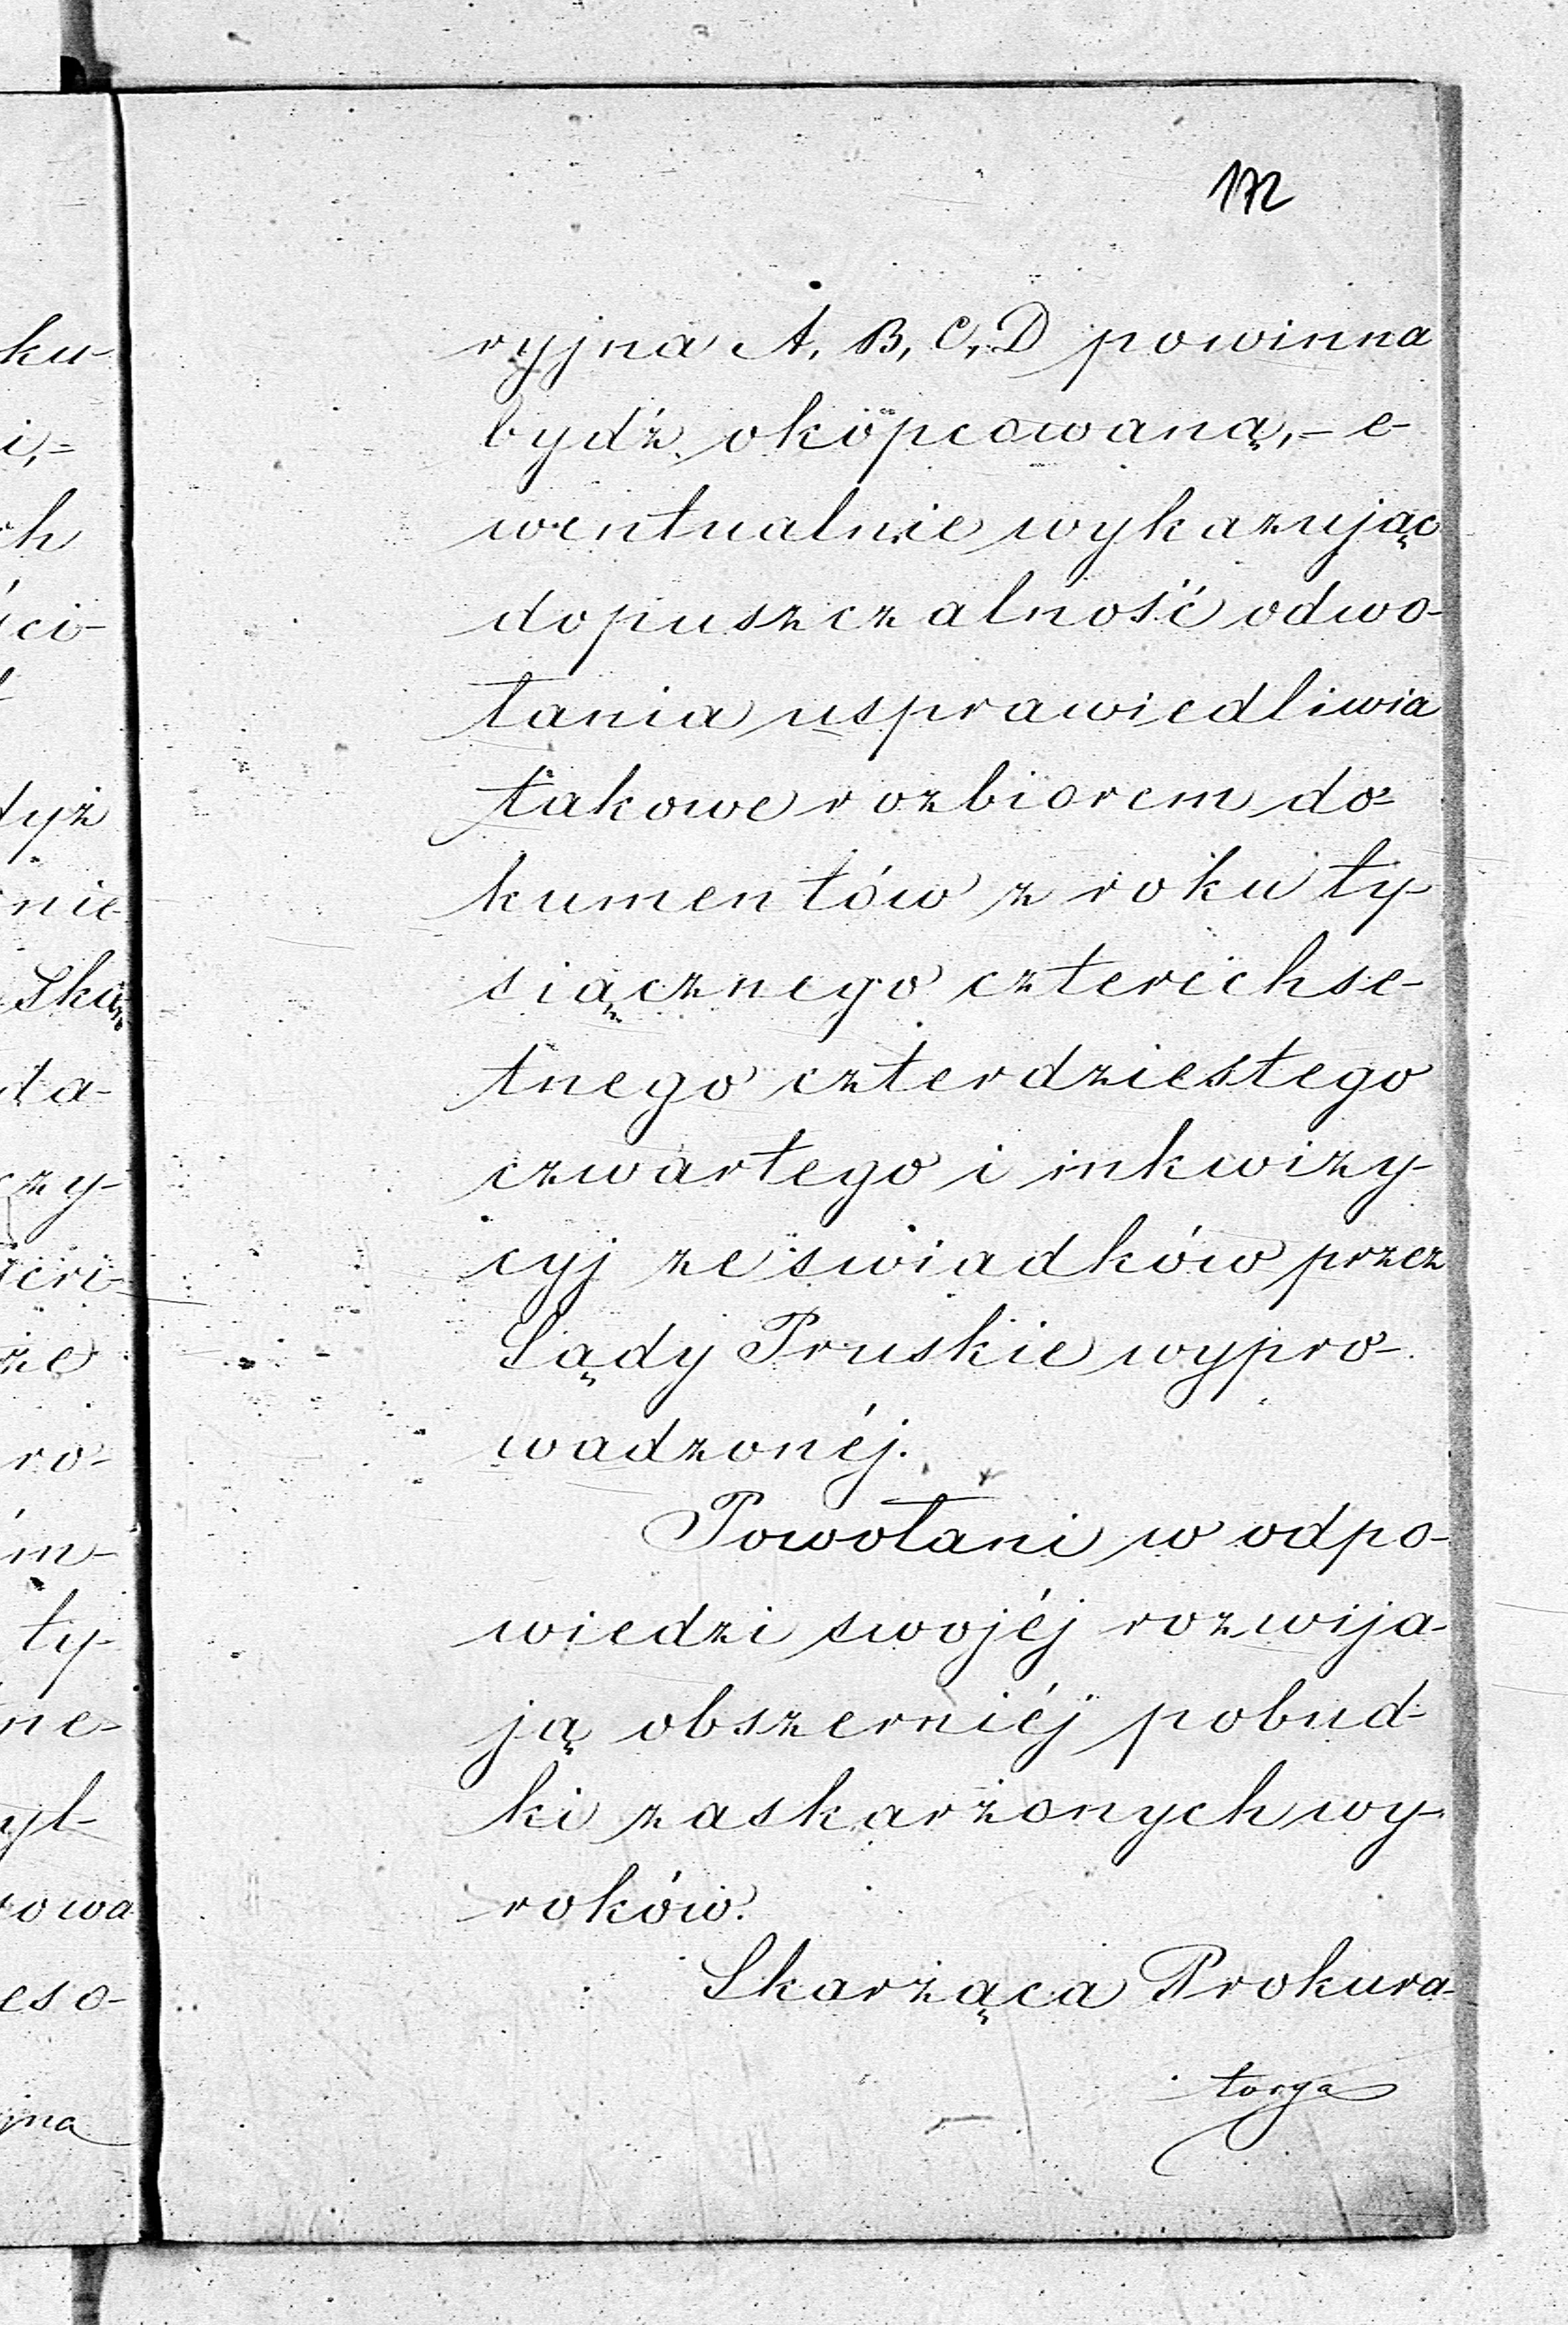 172
ryjna A, B, C, D powinna
bydź okopcowaną,- e-
wentualnie wykazując
dopuszczalność odwo-
łania usprawiedliwia
takowe rozbiorem do-
kumentów z roku ty-
siącznego czterechse-
tnego czterdziestego
czwartego i inkwizy-
cyj ze swiadków przez
Sądy Pruskie wypro-
wadzonéj.
Powołani w odpo-
wiedzi swojéj rozwija-
ją obszerniéj pobud-
ki zaskarżonych wy-
roków.
Skarżąca Prokura-
torya
ku-
i,-
ch
ści-
dyż
nie
Ską
ta-
czy-
że
ro-
im-
ty-
ne-
yl-
owa
eso-
jna